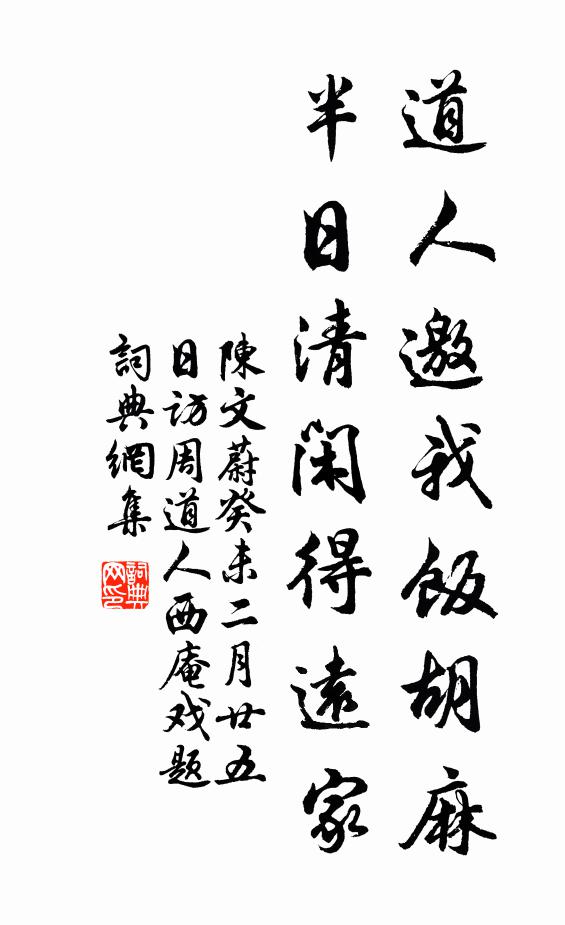 道人邀我飯胡麻
半日清閑得遠家
陳文蔚癸未二月廿五
日訪周道人西庵戏題
詞典網集
詞典网印